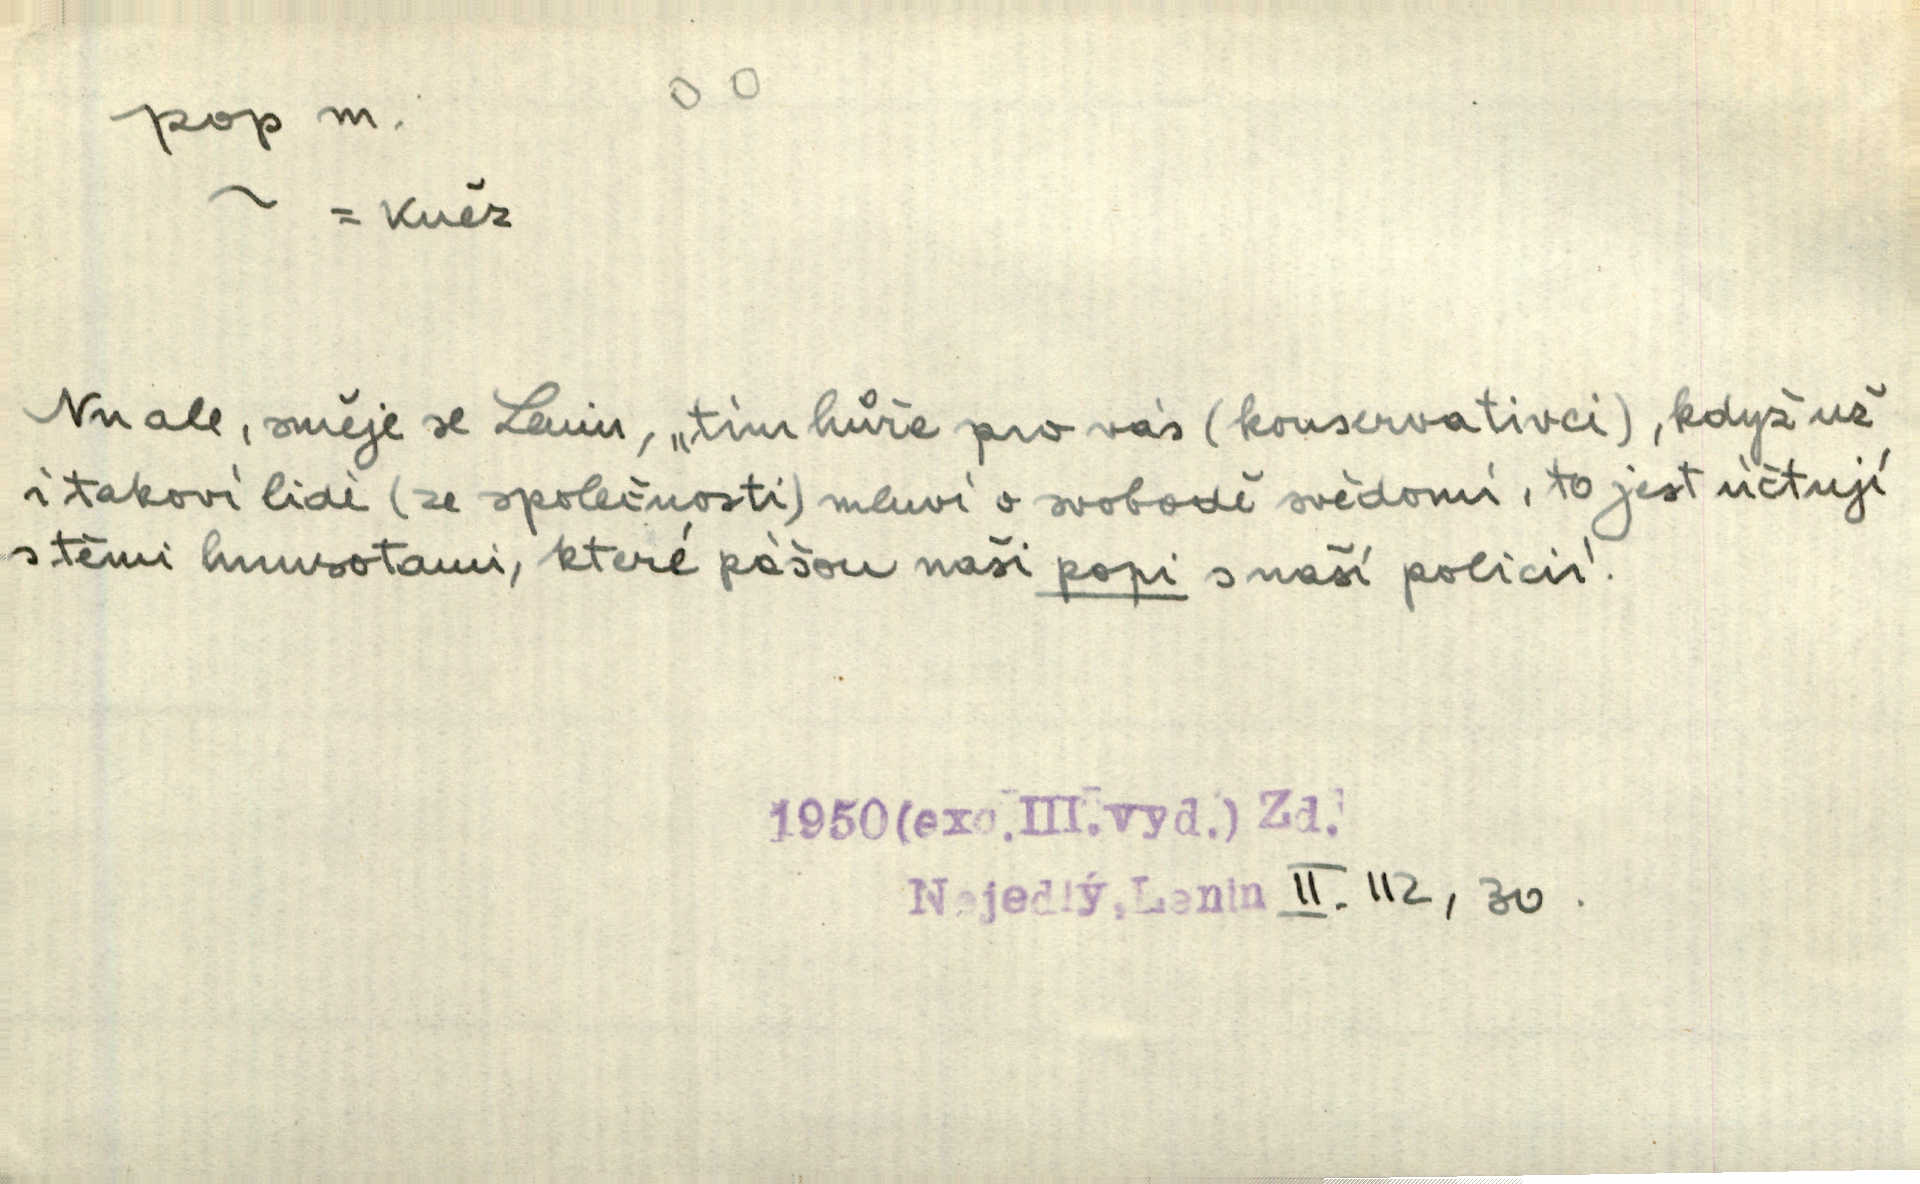 pop m.
~ = kněz
Nu ale, směje se Lenin, „tím hůře pro vás (konservativci), když už
i takoví lidé (ze společnosti) mluví o svobodě svědomí, to jest účtují
s těmi hnusotami, které pášou naši popi s naší policií.
1950 (exc. III. vyd.) Zd.
Nejedlý, Lenin II. 112, 30.